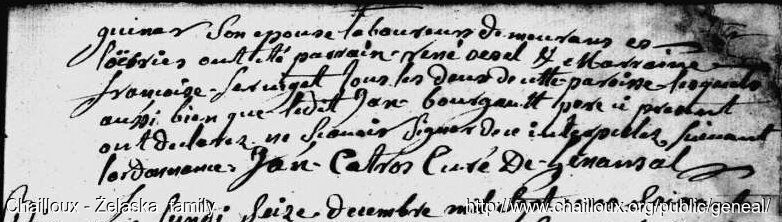 guinar son epouse laboureurs demeurans es
loëbries ont été parrain rené desel & Marraine
francoise seruget tous les deux de cette paroisse lesquels
aussi bien que ledit Jan bourgault pere ici present
ont declarez ne scavoir signer de ce interpellez suivant
lordonnance. Jan Catros Curé De henansal
Lundi seize decembre mil
Chailloux - Żelaska family http://www.chailloux.org/public/geneal/